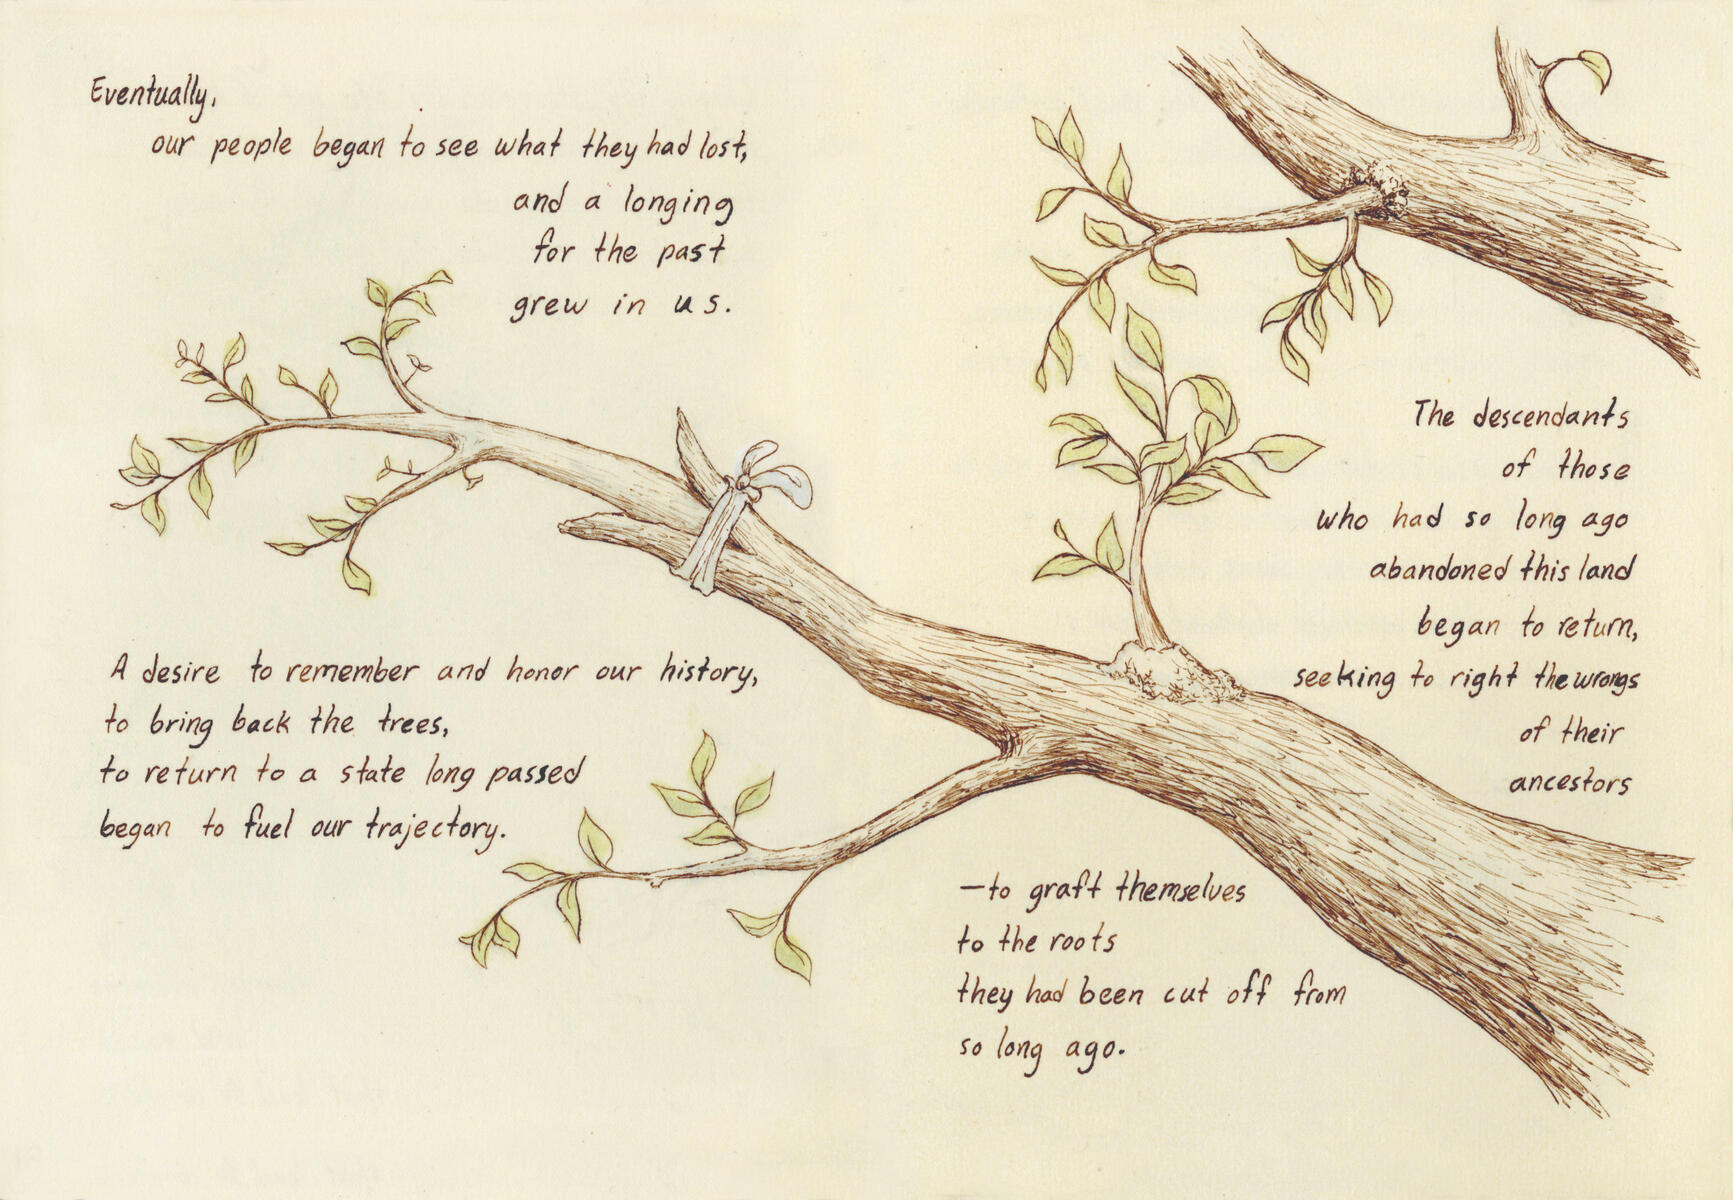 Eventually,
our people began to see what they had lost,
and a longing
for the past
grew in us.
A desire to remember and honor our history,
to bring back the trees,
to return to a state long passed
began to fuel our trajectory.
The descendants
of those
who had so long ago
abandoned this land
began to return,
seeking to right the wrongs
of their
ancestors
—to graft themselves
to the roots
they had been cut off from
so long ago.